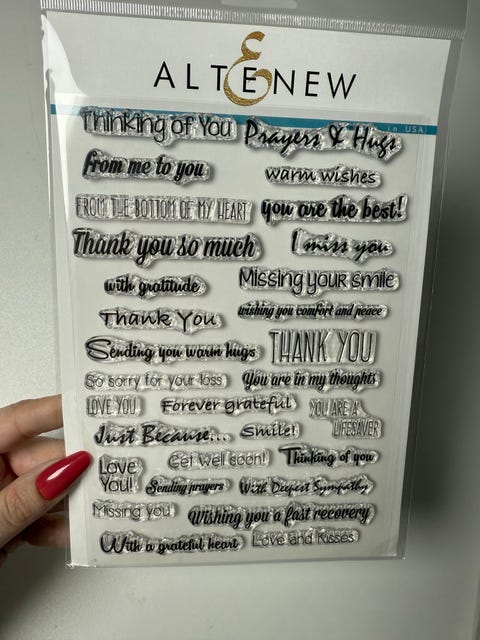 ALTENEW
in USA
Thinking of You
Prayers & Hugs
from me to you
warm wishes
FROM THE BOTTOM OF MY HEART
you are the best!
Thank you so much
I miss you
with gratitude
Missing your smile
Thank You
wishing you comfort and peace
Sending you warm hugs
THANK YOU
So sorry for your loss
You are in my thoughts
LOVE YOU
Forever grateful
YOU ARE A
LIFESAVER
Just Because...
Smile!
Love
You!
Get well soon!
Thinking of you
Sending prayers
With Deepest Sympathy
Missing you
Wishing you a fast recovery
With a grateful heart
Love and Kisses